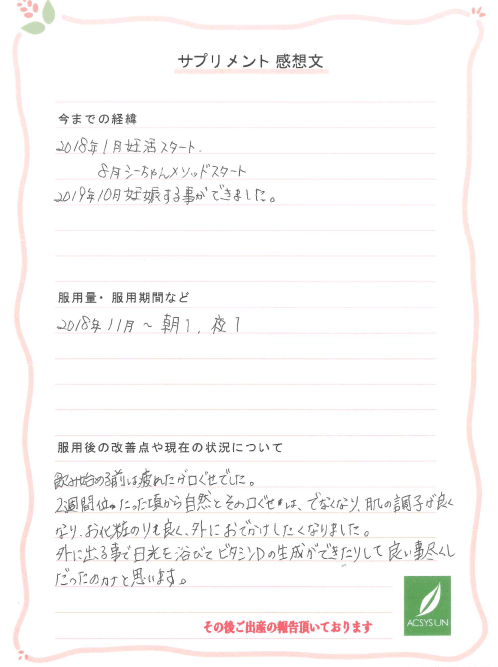 サプリメント 感想文
今までの経緯
2018年1月妊活スタート.
8月シーちゃんメソッドスタート
2019年10月妊娠する事ができました。
服用量・服用期間など
2018年11月〜朝1,夜1
服用後の改善点や現在の状況について
飲み始める前は疲れたが口ぐせでした。
2週間位たった頃から自然とその口ぐせは、でなくなり、肌の調子が良く
なり、お化粧のりも良く、外におでかけしたくなりました。
外に出る事で日光を浴びてビタミンDの生成ができたりして良い事尽くし
だったのカナと思います。
その後ご出産の報告頂いております
ACSYSUN